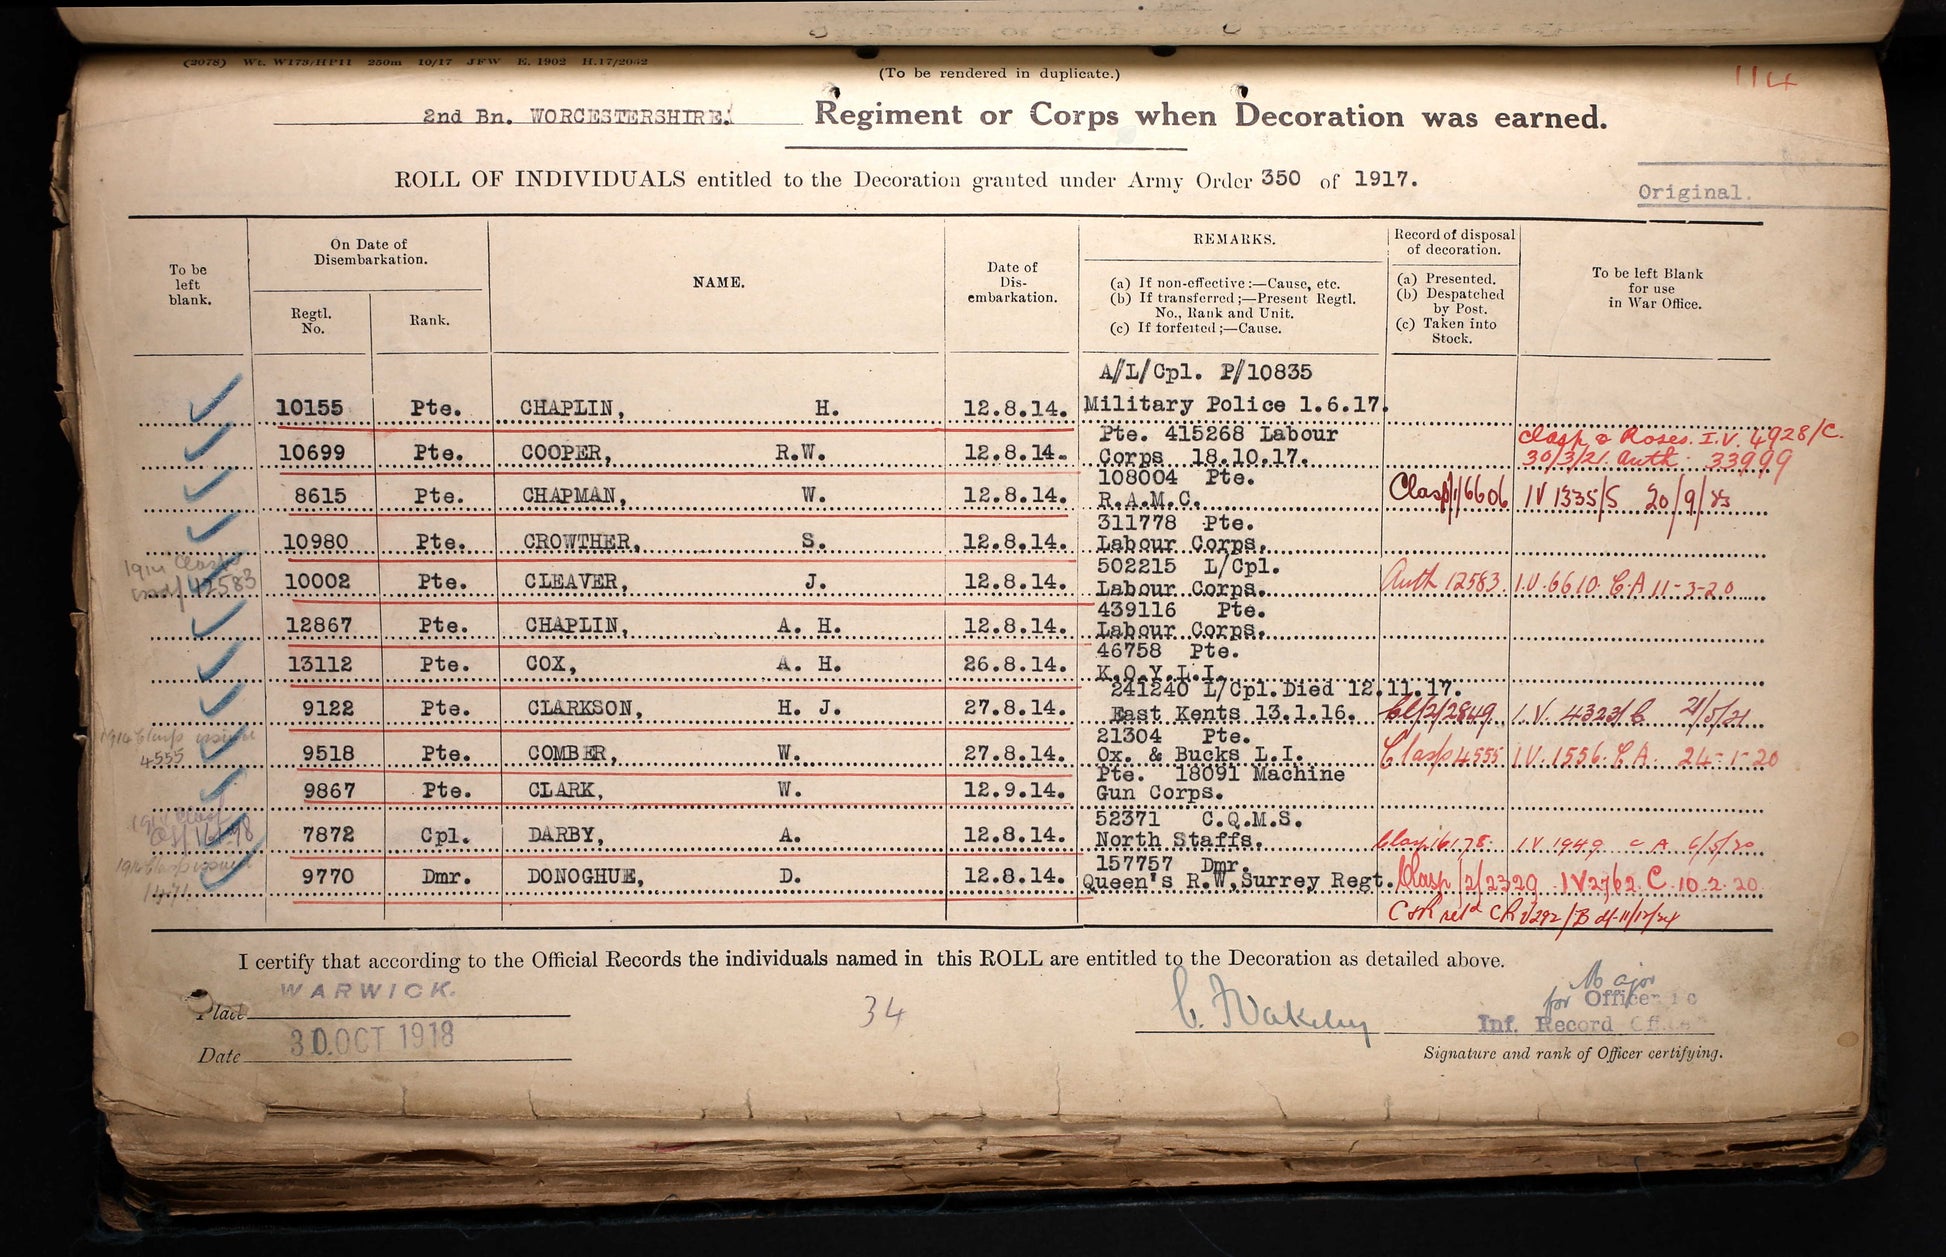 (2078) Wt. W173/HP11 250m 10/17 JFW E. 1902 H.17/2042
(To be rendered in duplicate.)
114
2nd Bn. WORCESTERSHIRE. Regiment or Corps when Decoration was earned.
ROLL OF INDIVIDUALS entitled to the Decoration granted under Army Order 350 of 1917.
Original.
To be left blank.
On Date of Disembarkation.
Regtl. No.
Rank.
NAME.
Date of Dis-embarkation.
REMARKS.
(a) If non-effective:—Cause, etc.
(b) If transferred;—Present Regtl. No., Rank and Unit.
(c) If forfeited;—Cause.
Record of disposal of decoration.
(a) Presented.
(b) Despatched by Post.
(c) Taken into Stock.
To be left Blank for use in War Office.
A/L/Cpl. P/10835
10155 Pte. CHAPLIN, H. 12.8.14. Military Police 1.6.17.
Pte. 415268 Labour Clasp & Roses. I.V. 4928/C.
10699 Pte. COOPER, R.W. 12.8.14. Corps 18.10.17. 30/3/21. Auth. 33999
108004 Pte.
8615 Pte. CHAPMAN, W. 12.8.14. R.A.M.C. Clasp/1/6606 IV 1335/S 20/9/
311778 Pte.
10980 Pte. CROWTHER, S. 12.8.14. Labour Corps.
1914 Clasp
502215 L/Cpl.
10002 Pte. CLEAVER, J. 12.8.14. Labour Corps. Auth 12583. I.V. 6610. E A 11-3-20
439116 Pte.
12867 Pte. CHAPLIN, A. H. 12.8.14. Labour Corps.
46758 Pte.
13112 Pte. COX, A. H. 26.8.14. K.O.Y.L.I.
241240 L/Cpl. Died 12.11.17.
9122 Pte. CLARKSON, H. J. 27.8.14. East Kents 13.1.16. Cl/2/2849 I.V. 4323/ 21/5/21
1914 Clasp issued
21304 Pte.
4555 9518 Pte. COMBER, W. 27.8.14. Ox. & Bucks L.I. Clasp 4555 I.V. 1556. E A. 24-1-20
Pte. 18091 Machine
9867 Pte. CLARK, W. 12.9.14. Gun Corps.
1914 Clasp
52371 C.Q.M.S.
7872 Cpl. DARBY, A. 12.8.14. North Staffs. Clasp 16178. IV 1949 A 6/5/20
1914 Clasp issued
157757 Dmr.
9770 Dmr. DONOGHUE, D. 12.8.14. Queen's R.W. Surrey Regt. Clasp /2/2329 IV2762 C 10.2.20
C & R
I certify that according to the Official Records the individuals named in this ROLL are entitled to the Decoration as detailed above.
Place WARWICK.
34
Major
for Officer i c
Inf. Record Office
Date 30 OCT 1918
Signature and rank of Officer certifying.